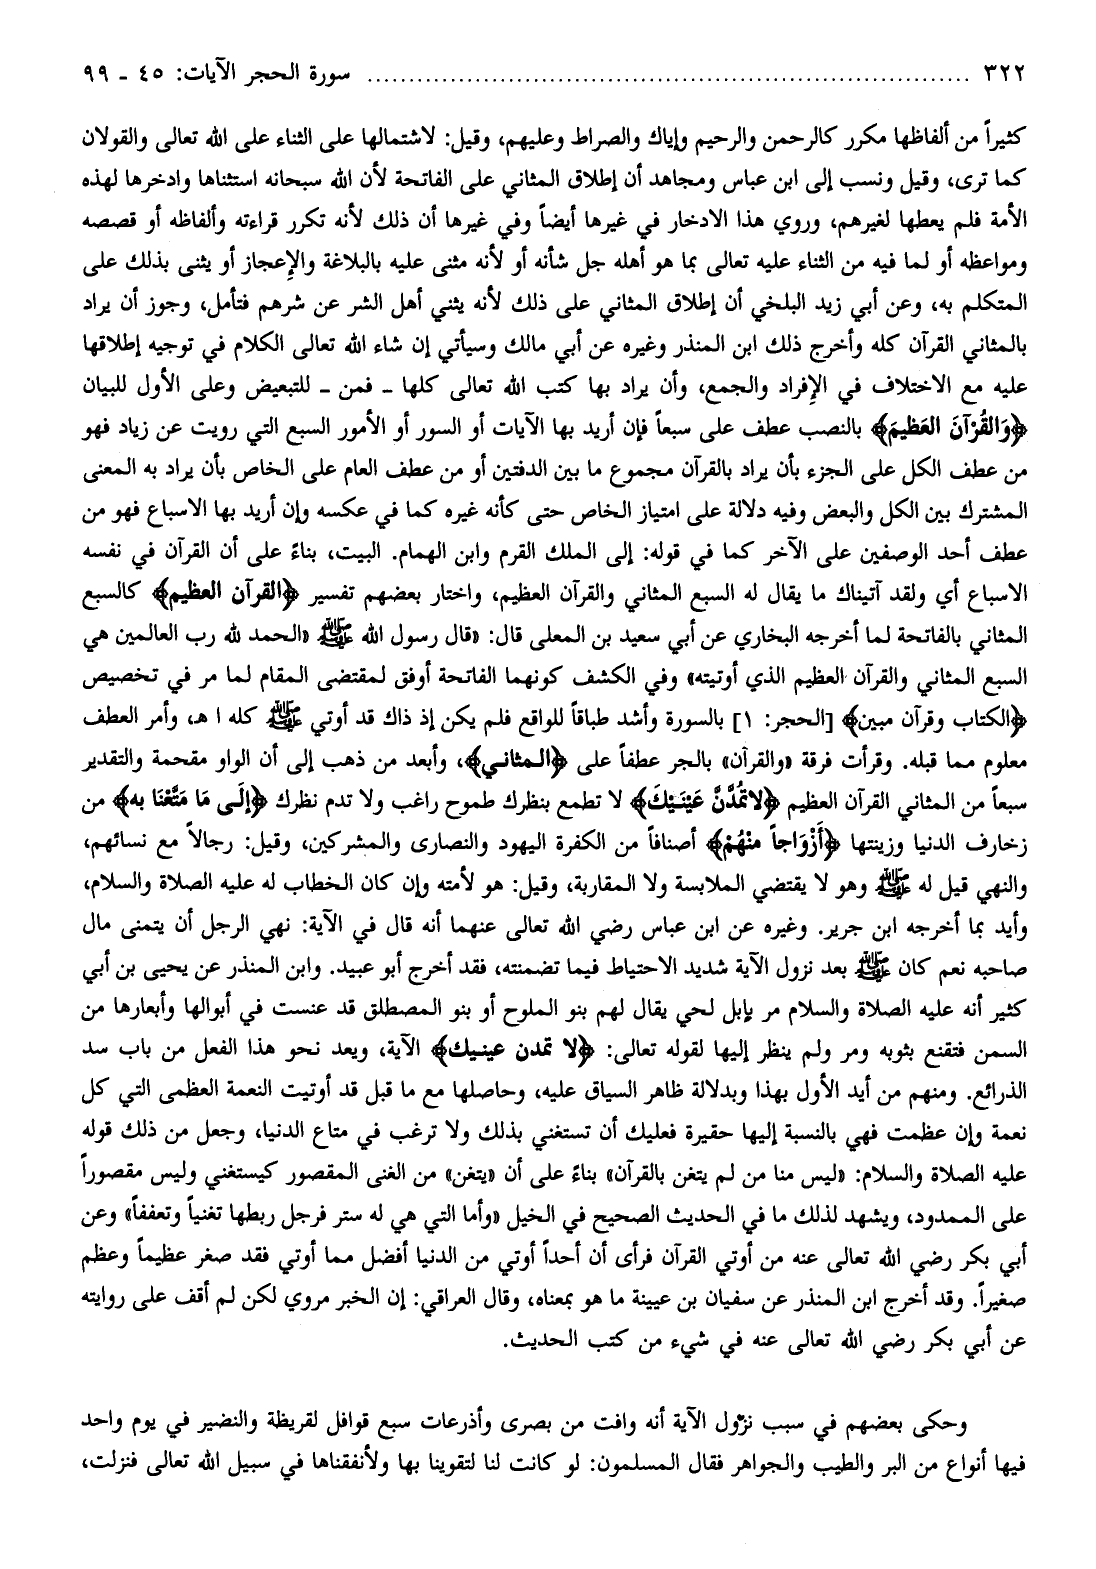 ٣٢٢ ........................................................................ سورة الحجر الآيات: ٤٥ ـ ٩٩
كثيراً من ألفاظها مكرر كالرحمن والرحيم وإياك والصراط وعليهم، وقيل: لاشتمالها على الثناء على الله تعالى والقولان
كما ترى، وقيل ونسب إلى ابن عباس ومجاهد أن إطلاق المثاني على الفاتحة لأن الله سبحانه استثناها وادخرها لهذه
الأمة فلم يعطها لغيرهم، وروي هذا الادخار في غيرها أيضاً وفي غيرها أن ذلك لأنه تكرر قراءته وألفاظه أو قصصه
ومواعظه أو لما فيه من الثناء عليه تعالى بما هو أهله جل شأنه أو لأنه مثنى عليه بالبلاغة والإعجاز أو يثنى بذلك على
المتكلم به، وعن أبي زيد البلخي أن إطلاق المثاني على ذلك لأنه يثني أهل الشر عن شرهم فتأمل، وجوز أن يراد
بالمثاني القرآن كله وأخرج ذلك ابن المنذر وغيره عن أبي مالك وسيأتي إن شاء الله تعالى الكلام في توجيه إطلاقها
عليه مع الاختلاف في الإفراد والجمع، وأن يراد بها كتب الله تعالى كلها ـ فمن ـ للتبعيض وعلى الأول للبيان
﴿وَالقُرْآنَ العَظِيمَ﴾ بالنصب عطف على سبعاً فإن أريد بها الآيات أو السور أو الأمور السبع التي رويت عن زياد فهو
من عطف الكل على الجزء بأن يراد بالقرآن مجموع ما بين الدفتين أو من عطف العام على الخاص بأن يراد به المعنى
المشترك بين الكل والبعض وفيه دلالة على امتياز الخاص حتى كأنه غيره كما في عكسه وإن أريد بها الاسباع فهو من
عطف أحد الوصفين على الآخر كما في قوله: إلى الملك القرم وابن الهمام. البيت، بناءً على أن القرآن في نفسه
الاسباع أي ولقد آتيناك ما يقال له السبع المثاني والقرآن العظيم، واختار بعضهم تفسير ﴿القرآن العظيم﴾ كالسبع
المثاني بالفاتحة لما أخرجه البخاري عن أبي سعيد بن المعلى قال: «قال رسول الله ﷺ «الحمد لله رب العالمين هي
السبع المثاني والقرآن العظيم الذي أوتيته» وفي الكشف كونهما الفاتحة أوفق لمقتضى المقام لما مر في تخصيص
﴿الكتاب وقرآن مبين﴾ [الحجر: ١] بالسورة وأشد طباقاً للواقع فلم يكن إذ ذاك قد أوتي ﷺ كله ا هـ، وأمر العطف
معلوم مما قبله. وقرأت فرقة «والقرآن» بالجر عطفاً على ﴿المثاني﴾، وأبعد من ذهب إلى أن الواو مقحمة والتقدير
سبعاً من المثاني القرآن العظيم ﴿لاتَمُدَّنَّ عَيْنَيْكَ﴾ لا تطمع بنظرك طموح راغب ولا تدم نظرك ﴿إلَى مَا مَتَّعْنَا به﴾ من
زخارف الدنيا وزينتها ﴿أَزْوَاجاً منْهُمْ﴾ أصنافاً من الكفرة اليهود والنصارى والمشركين، وقيل: رجالاً مع نسائهم،
والنهي قيل له ﷺ وهو لا يقتضي الملابسة ولا المقاربة، وقيل: هو لأمته وإن كان الخطاب له عليه الصلاة والسلام،
وأيد بما أخرجه ابن جرير. وغيره عن ابن عباس رضي الله تعالى عنهما أنه قال في الآية: نهي الرجل أن يتمنى مال
صاحبه نعم كان ﷺ بعد نزول الآية شديد الاحتياط فيما تضمنته، فقد أخرج أبو عبيد. وابن المنذر عن يحيى بن أبي
كثير أنه عليه الصلاة والسلام مر بإبل لحي يقال لهم بنو الملوح أو بنو المصطلق قد عنست في أبوالها وأبعارها من
السمن فتقنع بثوبه ومر ولم ينظر إليها لقوله تعالى: ﴿لا تمدن عينيك﴾ الآية، ويعد نحو هذا الفعل من باب سد
الذرائع. ومنهم من أيد الأول بهذا وبدلالة ظاهر السياق عليه، وحاصلها مع ما قبل قد أوتيت النعمة العظمى التي كل
نعمة وإن عظمت فهي بالنسبة إليها حقيرة فعليك أن تستغني بذلك ولا ترغب في متاع الدنيا، وجعل من ذلك قوله
عليه الصلاة والسلام: «ليس منا من لم يتغن بالقرآن» بناءً على أن «يتغن» من الغنى المقصور كيستغني وليس مقصوراً
على الممدود، ويشهد لذلك ما في الحديث الصحيح في الخيل «وأما التي هي له ستر فرجل ربطها تغنياً وتعففاً» وعن
أبي بكر رضي الله تعالى عنه من أوتي القرآن فرأى أن أحداً أوتي من الدنيا أفضل مما أوتي فقد صغر عظيماً وعظم
صغيراً. وقد أخرج ابن المنذر عن سفيان بن عيينة ما هو بمعناه، وقال العراقي: إن الخبر مروي لكن لم أقف على روايته
عن أبي بكر رضي الله تعالى عنه في شيء من كتب الحديث.
وحكى بعضهم في سبب نزول الآية أنه وافت من بصرى وأذرعات سبع قوافل لقريظة والنضير في يوم واحد
فيها أنواع من البر والطيب والجواهر فقال المسلمون: لو كانت لنا لتقوينا بها ولأنفقناها في سبيل الله تعالى فنزلت،